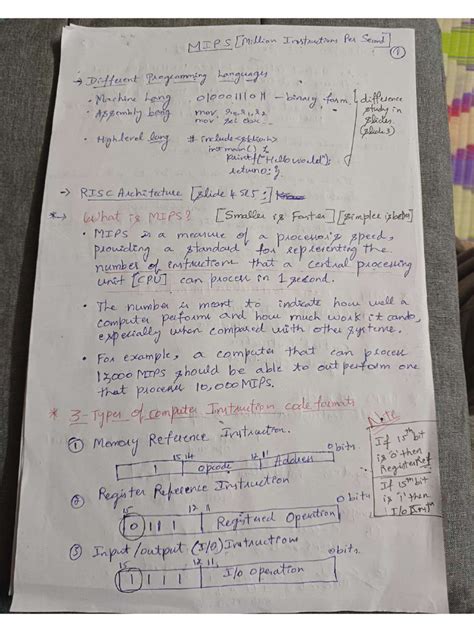 MIPS [Million Instructions Per Second]
1
→ Different Programming Languages
• Machine Lang 010001110 11 - binary form
• Assembly Lang mov
mov
• High level lang # include <stdio.h>
int main() {
printf("Hello world");
return 0; }
difference
study in
slides
(slide 3)
→ RISC Architecture [slide 4 &5:]
* → What is MIPS? [Smaller is Faster] [simpler is better]
• MIPS is a measure of a processor's speed,
providing a standard for representing the
number of instructions that a central processing
unit [CPU] can process in 1 second.
• The number is meant to indicate how well a
computer performs and how much work it can do,
especially when compared with other systems.
• For example, a computer that can process
13000 MIPS should be able to outperform one
that process 10,000 MIPS.
* 3-Types of computer Instruction code formats
① Memory Reference Instruction.
15 14 12 11 0 bits
1 Opcode Address
② Register Reference Instruction
15 12 11 0 bits
0 1 1 1 Registered Operation
③ Input/output (I/O) Instructions
15 12 11 0 bits.
1 1 1 1 I/O Operation
N.B
If 15th bit
is '0' then
Register Ref
If 15th bit
is '1' then
I/O Inst